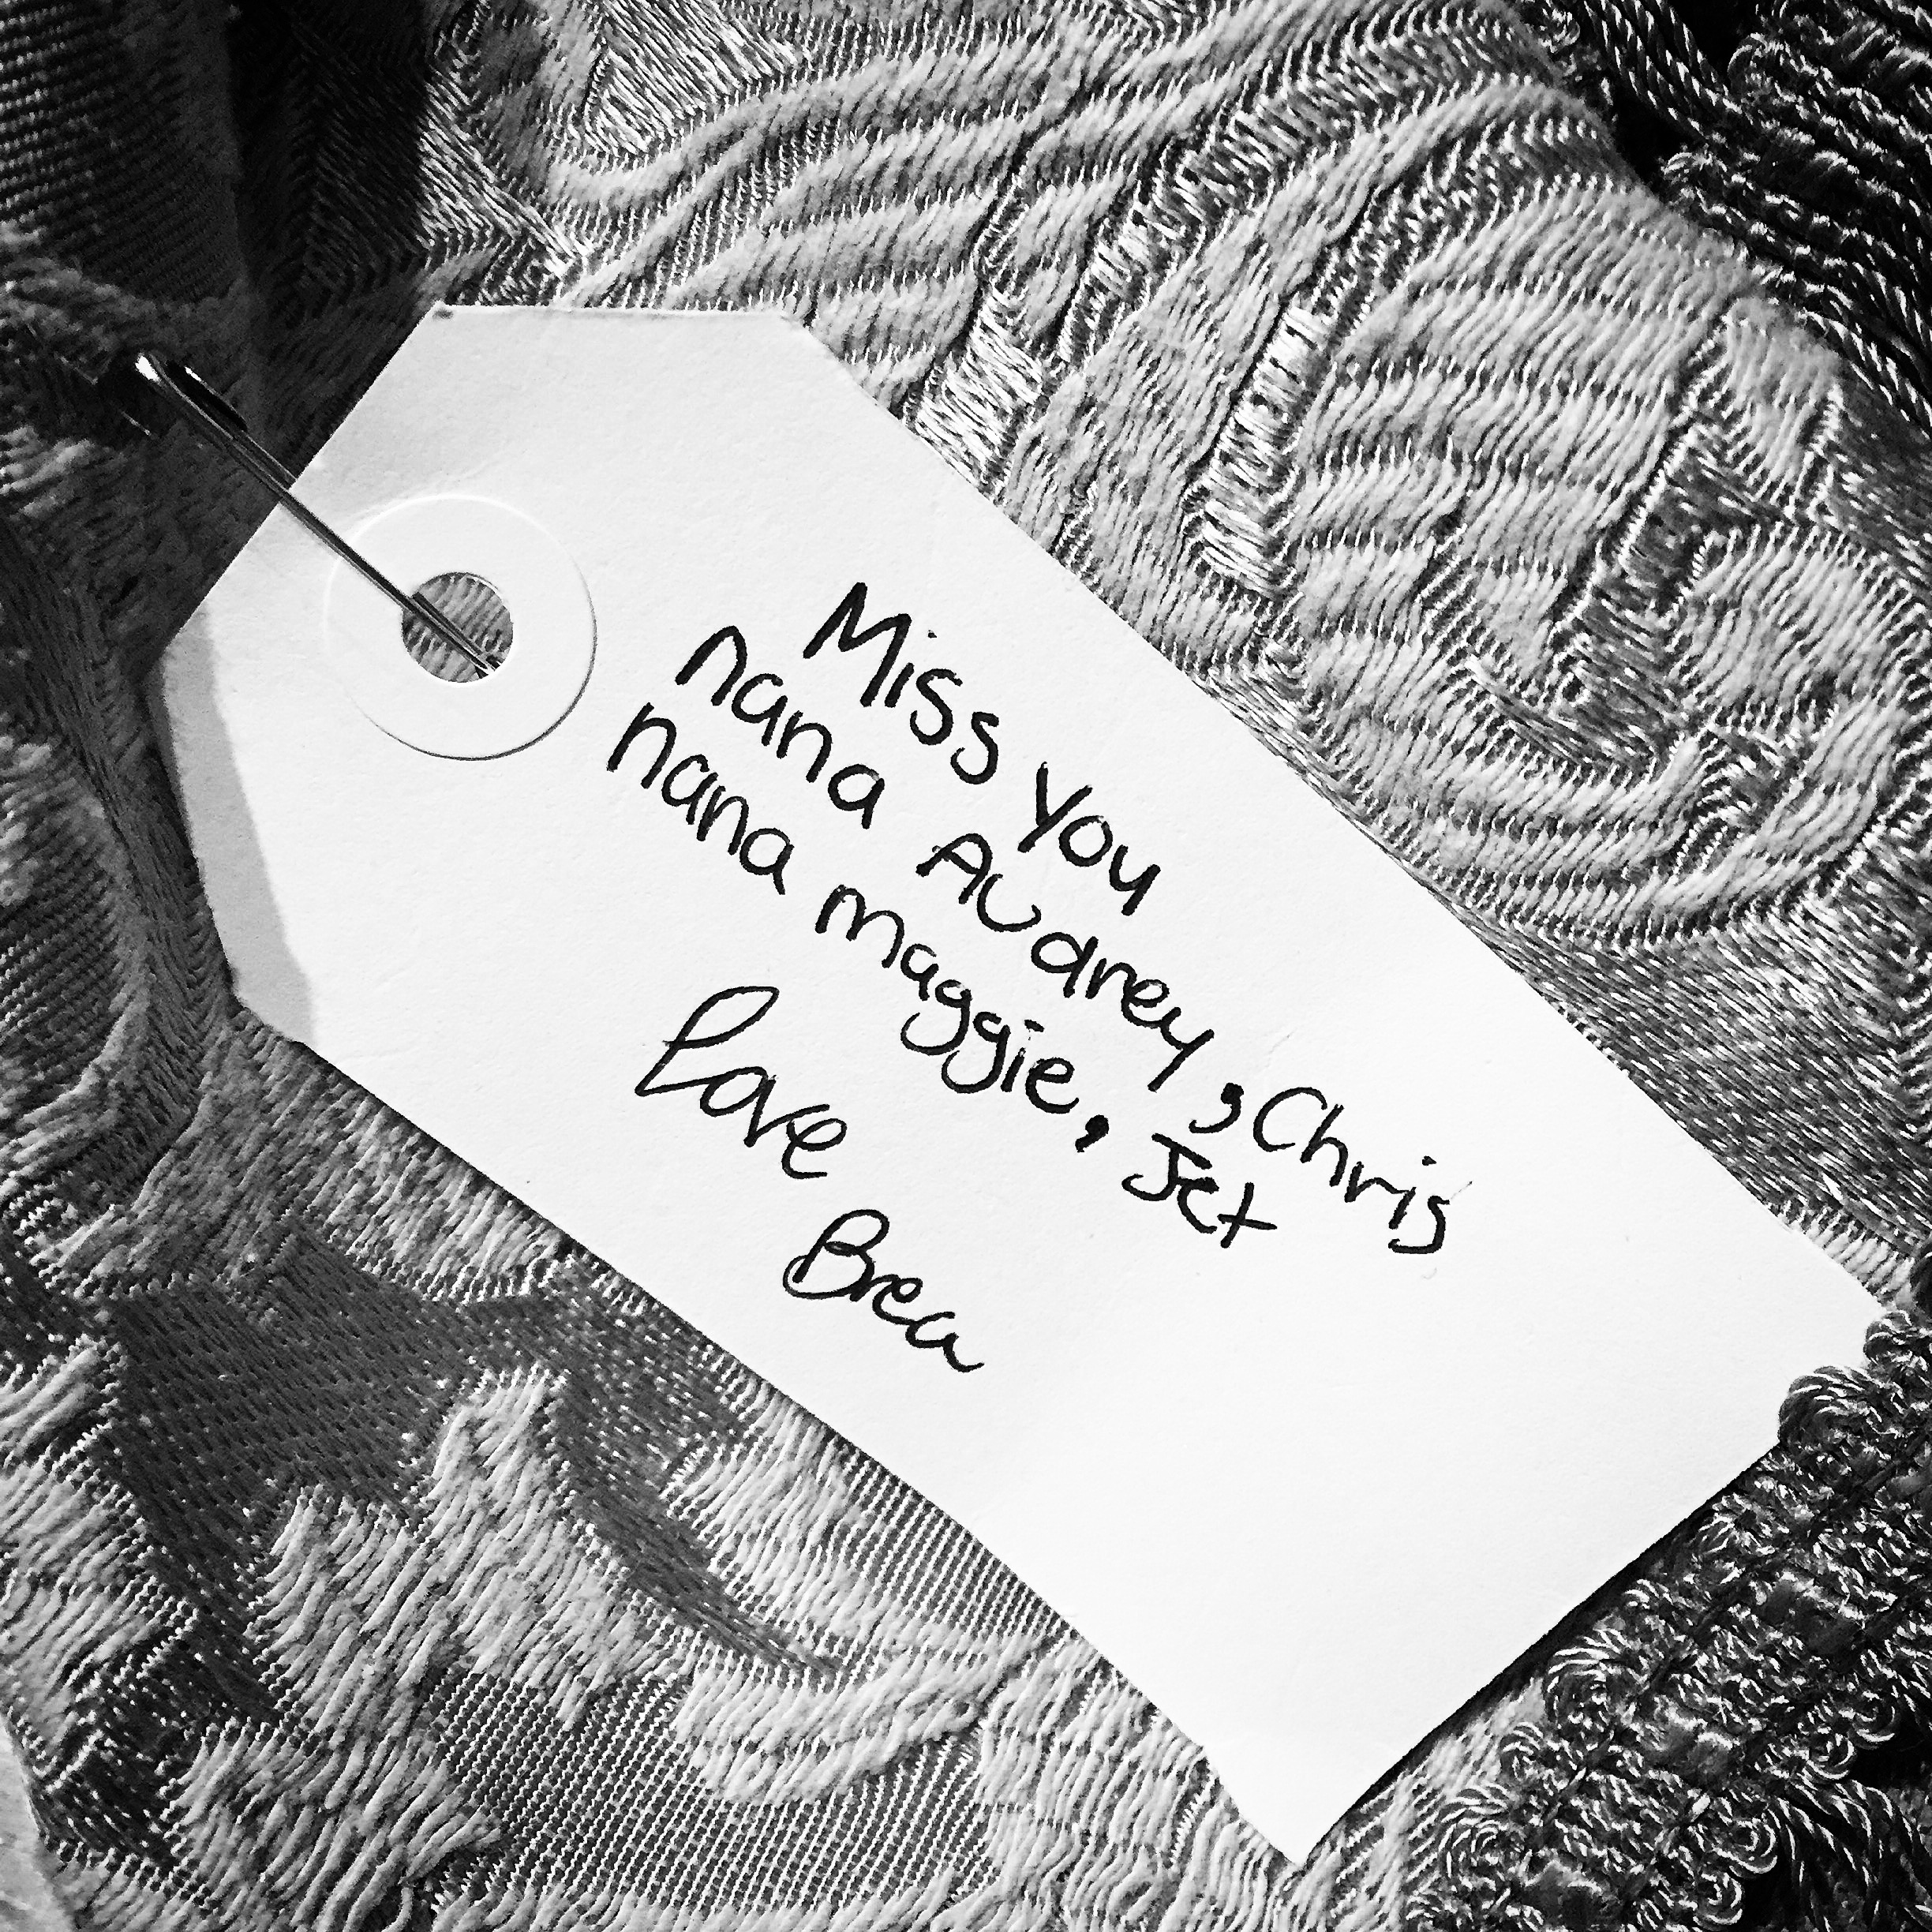 Miss you
nana Audrey, Chris
nana maggie, Jet
love
Brea